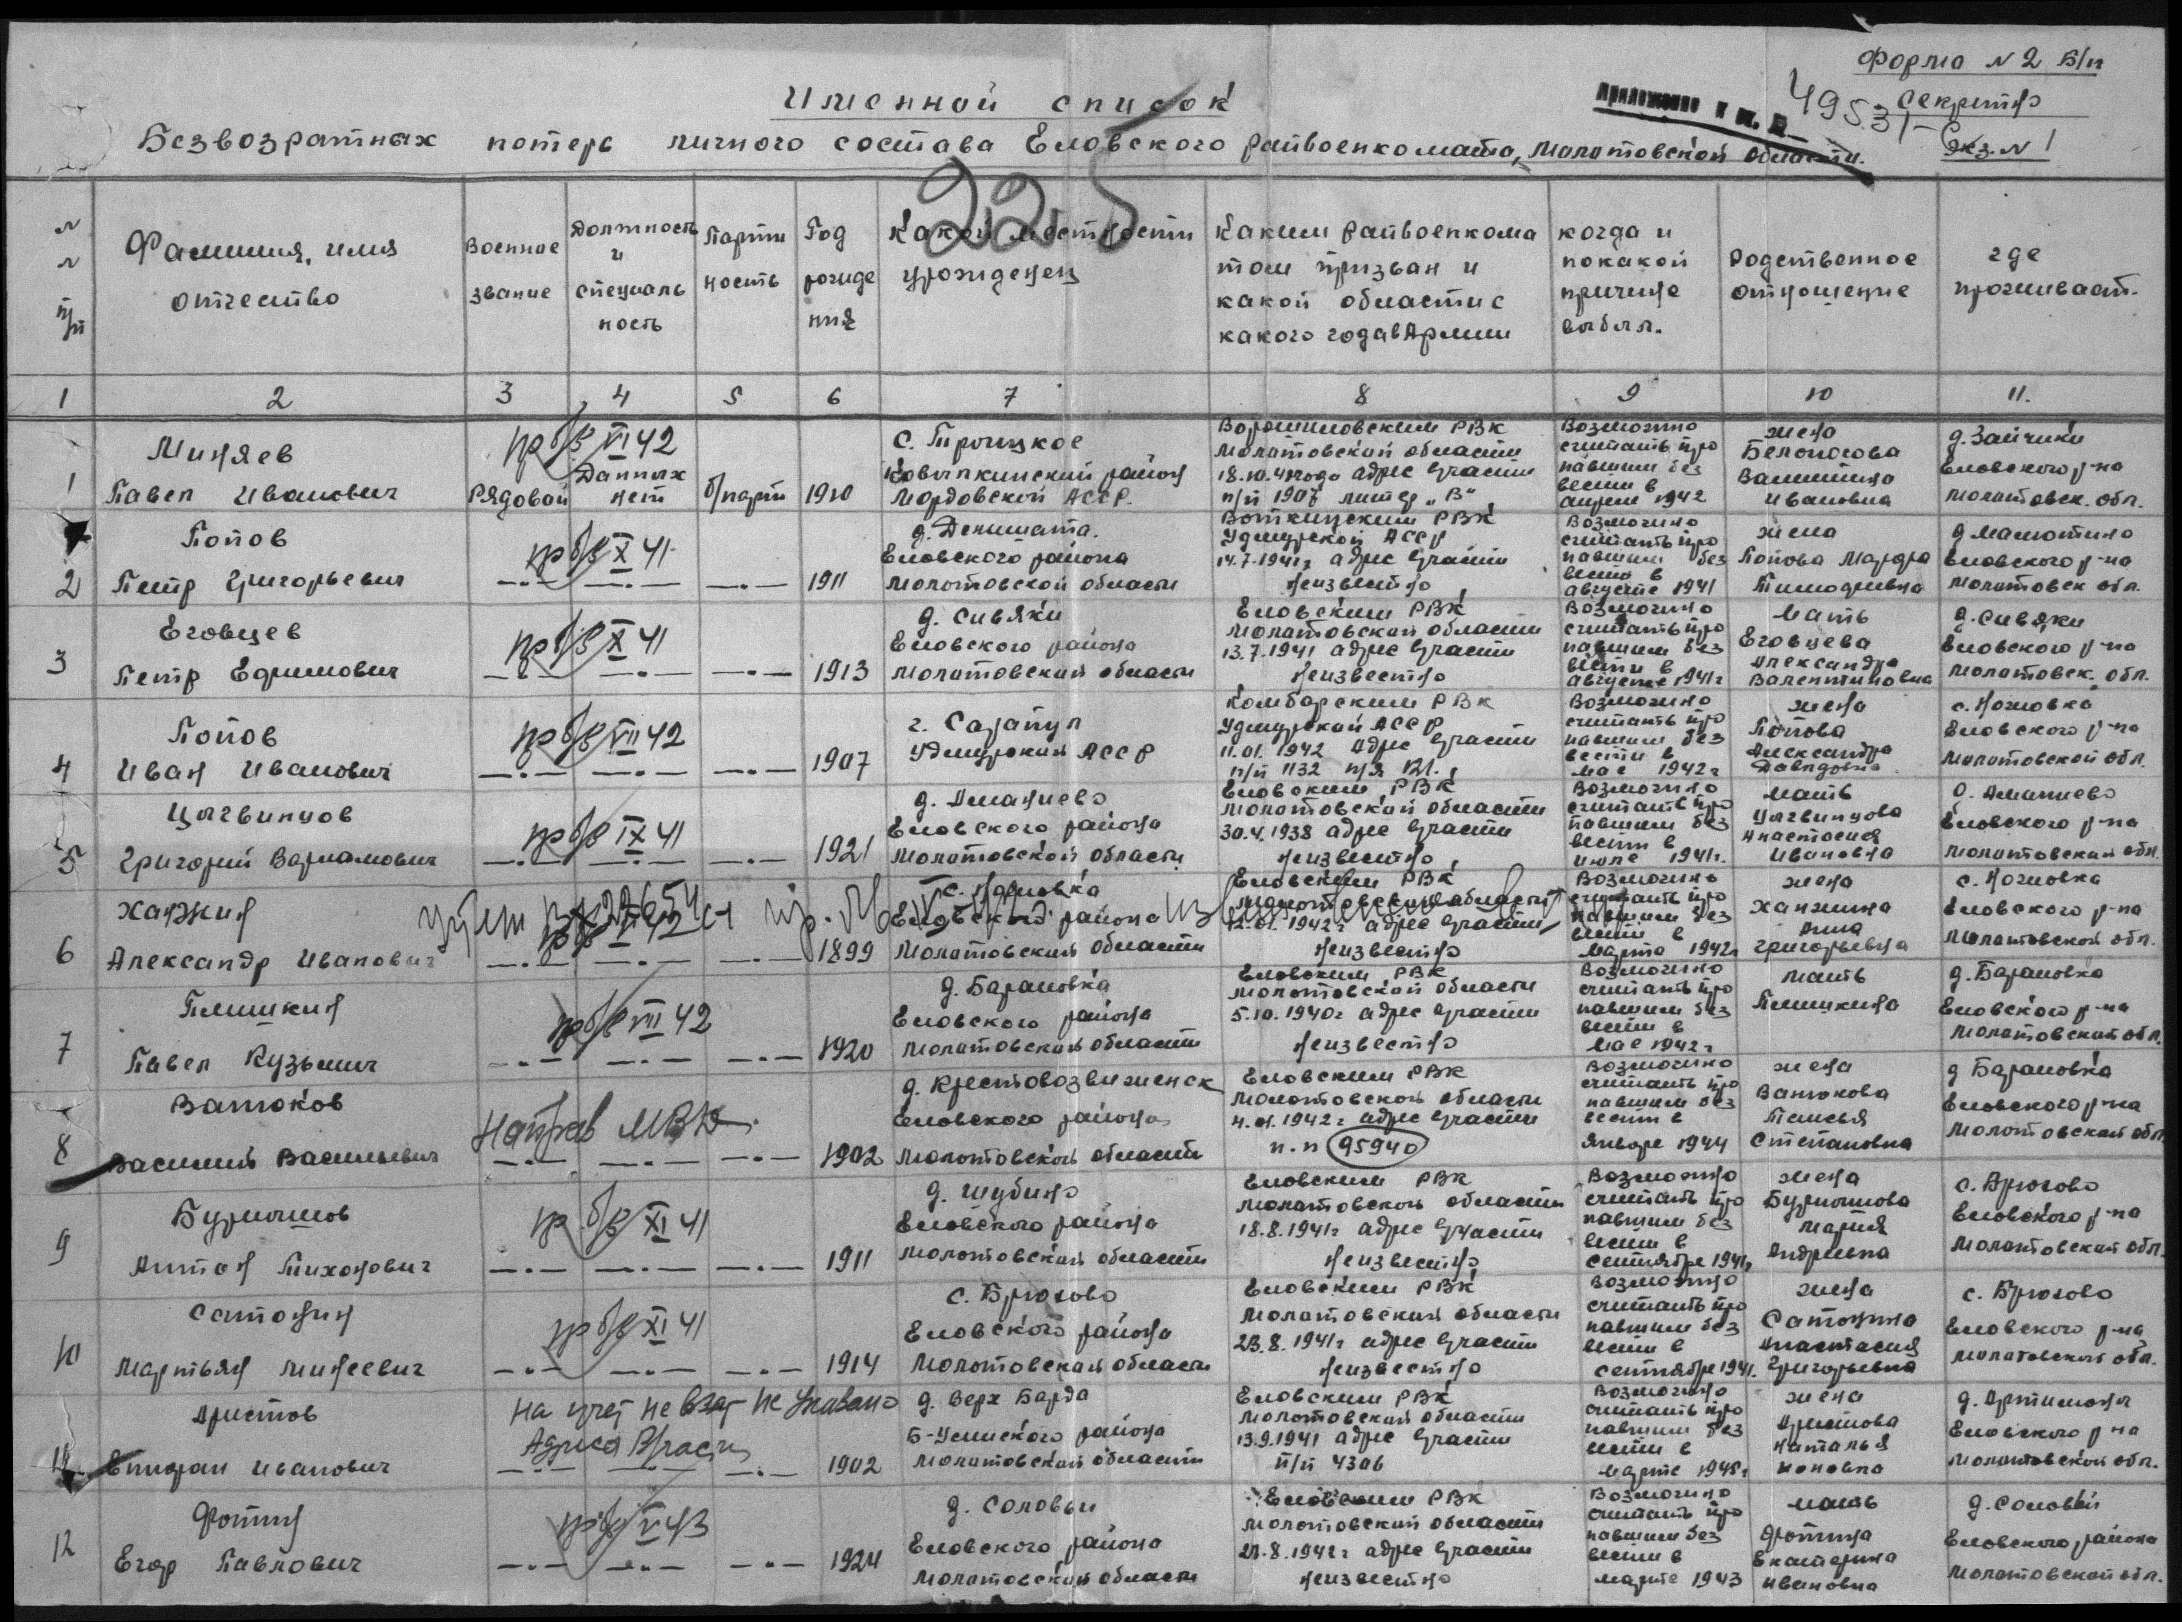 Форма N 2 Б/п
Секретно
Экз. N 1
приложение к вх. №
49531-с
Именной список
Безвозратных потерь личного состава Еловского райвоенкомата, Молотовской области.
225
№ № п/п
Фамилия, имя отчество
Военное звание
Должность и специаль ность
Парти ность
Год рожде ния
Какой местности урожденец
Каким райвоенкома том призван и какой области с какого года в Армии
когда и по какой причине выбыл.
Родственное отношение
где проживает.
1 2 3 4 5 6 7 8 9 10 11.
1
Миняев
Павел Иванович
пр б/в VI 42
Рядовой
Данных нет
б/парт
1910
с. Троицкое
Ковылкинский район
Мордовской АССР.
Ворошиловским РВК
Молотовский области
18.10.41 года адрес части
п/п 1907 литер „В"
Возможно
считать про
павшим без
вести в
апреле 1942
жена
Белоногова
Валентина
Ивановна
д. Зайчики
Еловского р-на
Молотовск. обл.
2
Попов
Петр Григорьевич
пр б/в X 41
—.— —.— —.—
1911
д. Денишата.
Еловского района
Молотовской области
Воткинским РВК
Удмурской АССР
14.7.1941г адрес части
неизвестно
Возможно
считать про
павшим без
вести в
августе 1941
жена
Попова Марфа
Тимофеевна
д Мамотино
Еловского р-на
Молотовск обл.
3
Еговцев
Петр Ефимович
пр б/в X 41
—.— —.— —.—
1913
д. Сивяки
Еловского района
Молотовский области
Еловским РВК
Молотовский области
13.7.1941 адрес части
неизвестно
Возможно
считать про
павшим без
вести в
августе 1941г
мать
Еговцева
Александра
Валентиновна
д. Сивяки
Еловского р-на
Молотовск. обл.
4
Попов
Иван Иванович
пр б/в VII 42
—.— —.— —.—
1907
г. Сарапул
Удмурский АССР
Комбарским РВК
Удмурский АССР
11.01.1942 адрес части
п/п 1132 п/я 121.
Возможно
считать про
павшим без
вести в
мае 1942г
жена
Попова
Александра
Давидовна
с. Ножовка
Еловского р-на
Молотовской обл.
5
Цыгвинцов
Григорий Варламович
пр б/в IX 41
—.— —.— —.—
1921
д. Аманиево
Еловского района
Молотовской области
Еловским РВК
Молотовский области
30.4.1938 адрес части
неизвестно
Возможно
считать про
павшим без
вести в
июле 1941г.
мать
Цыгвинцова
Анастасия
Ивановна
д. Аманиево
Еловского р-на
Молотовский обл.
6
Ханжин
Александр Иванович
учтен
пр б/в VI 42
—.— —.— —.—
1899
с. Ножовка
Еловского района
Молотовский области
Еловским РВК
Молотовский области
12.01.1942г адрес части
неизвестно
Возможно
считать про
павшим без
вести в
марте 1942г
жена
Ханжина
Анна
Григорьевна
с. Ножовка
Еловского р-на
Молотовской обл.
7
Плишкин
Павел Кузьмич
пр б/в VII 42
—.— —.— —.—
1920
д. Барановка
Еловского района
Молотовский области
Еловским РВК
Молотовской области
5.10.1940г адрес части
неизвестно
Возможно
считать про
павшим без
вести в
мае 1942г
мать
Плишкина
д. Барановка
Еловского р-на
Молотовский обл.
8
Ватюков
Василий Васильевич
Направ МВД
—.— —.— —.—
1902
д. Крестовозвиженск
Еловского района
Молотовской области
Еловским РВК
Молотовской области
4.01.1942г адрес части
п.п 95940
Возможно
считать про
павшим без
вести в
январе 1944
жена
Ватюкова
Таисья
Степановна
д Барановка
Еловского р-на
Молотовский обл
9
Бурмошов
Антон Тихонович
пр б/в XI 41
—.— —.— —.—
1911
д. Шубино
Еловского района
Молотовский области
Еловским РВК
Молотовской области
18.8.1941г адрес части
неизвестно
Возможно
считать про
павшим без
вести в
сентябре 1941г
жена
Бурмошова
Мария
Андреевна
с. Брюхово
Еловского р-на
Молотовский обл.
10
Сатонин
Мартьян Минеевич
пр б/в XI 41
—.— —.— —.—
1914
с. Брюхово
Еловского района
Молотовский области
Еловским РВК
Молотовский области
23.8.1941г адрес части
неизвестно
Возможно
считать про
павшим без
вести в
сентябре 1941.
жена
Сатонина
Анастасия
Григорьевна
с. Брюхово
Еловского р-на
Молотовской обл.
11
Аристов
Епифан Иванович
на учет не взят не указано
Адреса В/части
—.— —.— —.—
1902
д. Верх Барда
Б-Усинского района
Молотовский области
Еловским РВК
Молотовский области
13.9.1941 адрес части
п/п 4306
Возможно
считать про
павшим без
вести в
марте 1945г
жена
Аристова
Наталья
Ионовна
Еловского р-на
Молотовской обл.
12
Фотин
Егор Павлович
пр б/в V 43
—.— —.— —.—
1924
д. Соловьи
Еловского района
Молотовский области
Еловским РВК
Молотовский области
21.8.1942г адрес части
неизвестно
Возможно
считать про
павшим без
вести в
марте 1943
мать
Фотина
Екатерина
Ивановна
д. Соловьи
Еловского района
Молотовской обл.